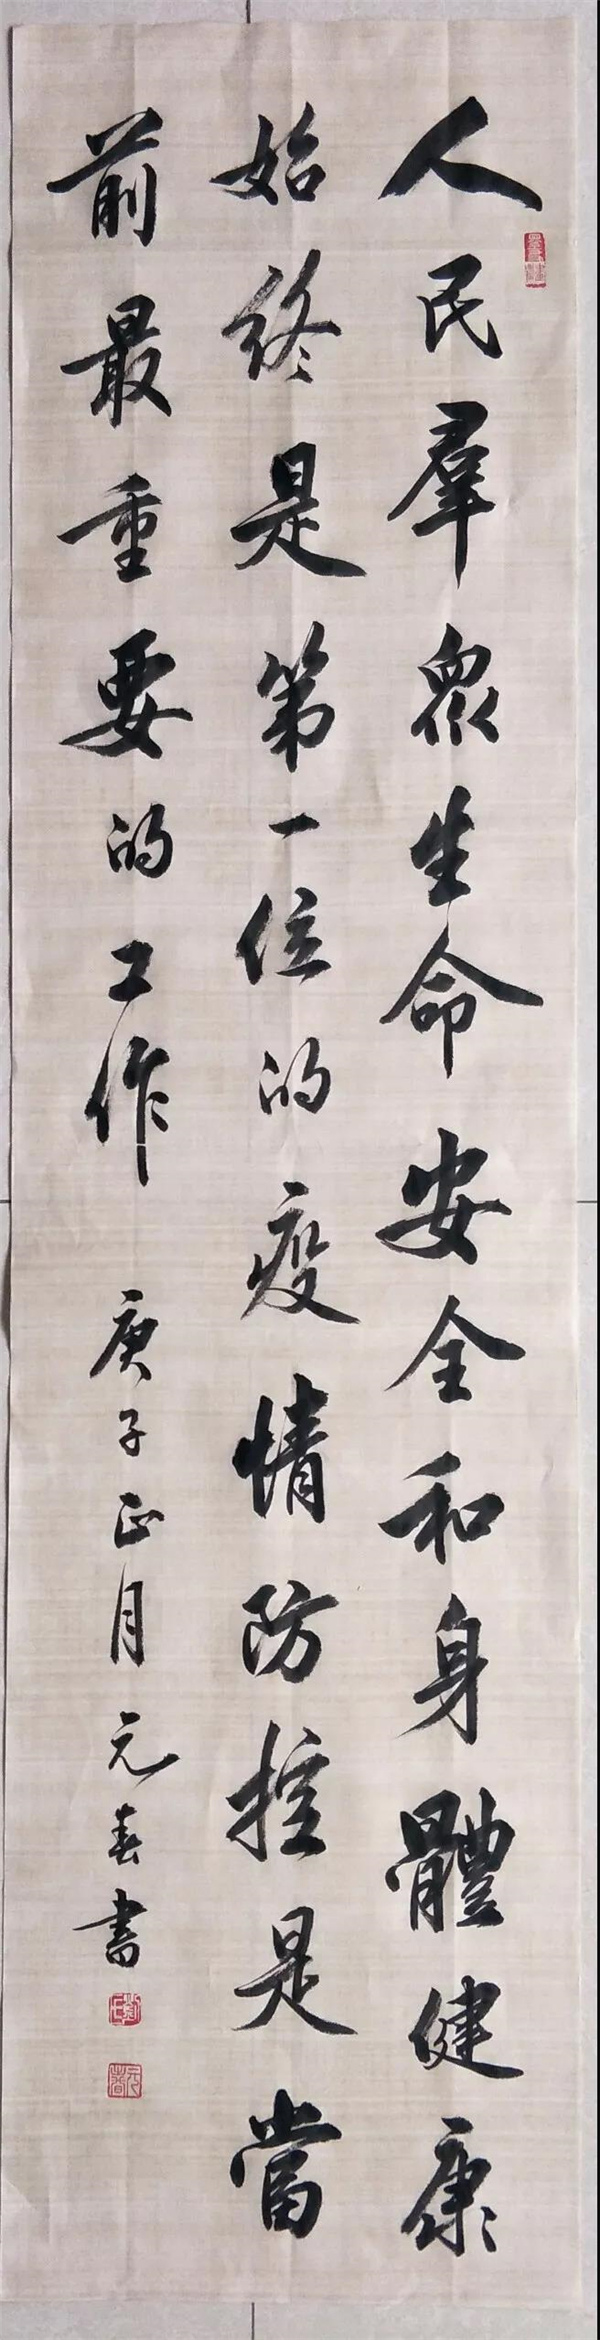 人民羣眾生命安全和身體健康
始終是第一位的疫情防控是當
前最重要的工作
庚子正月元春書